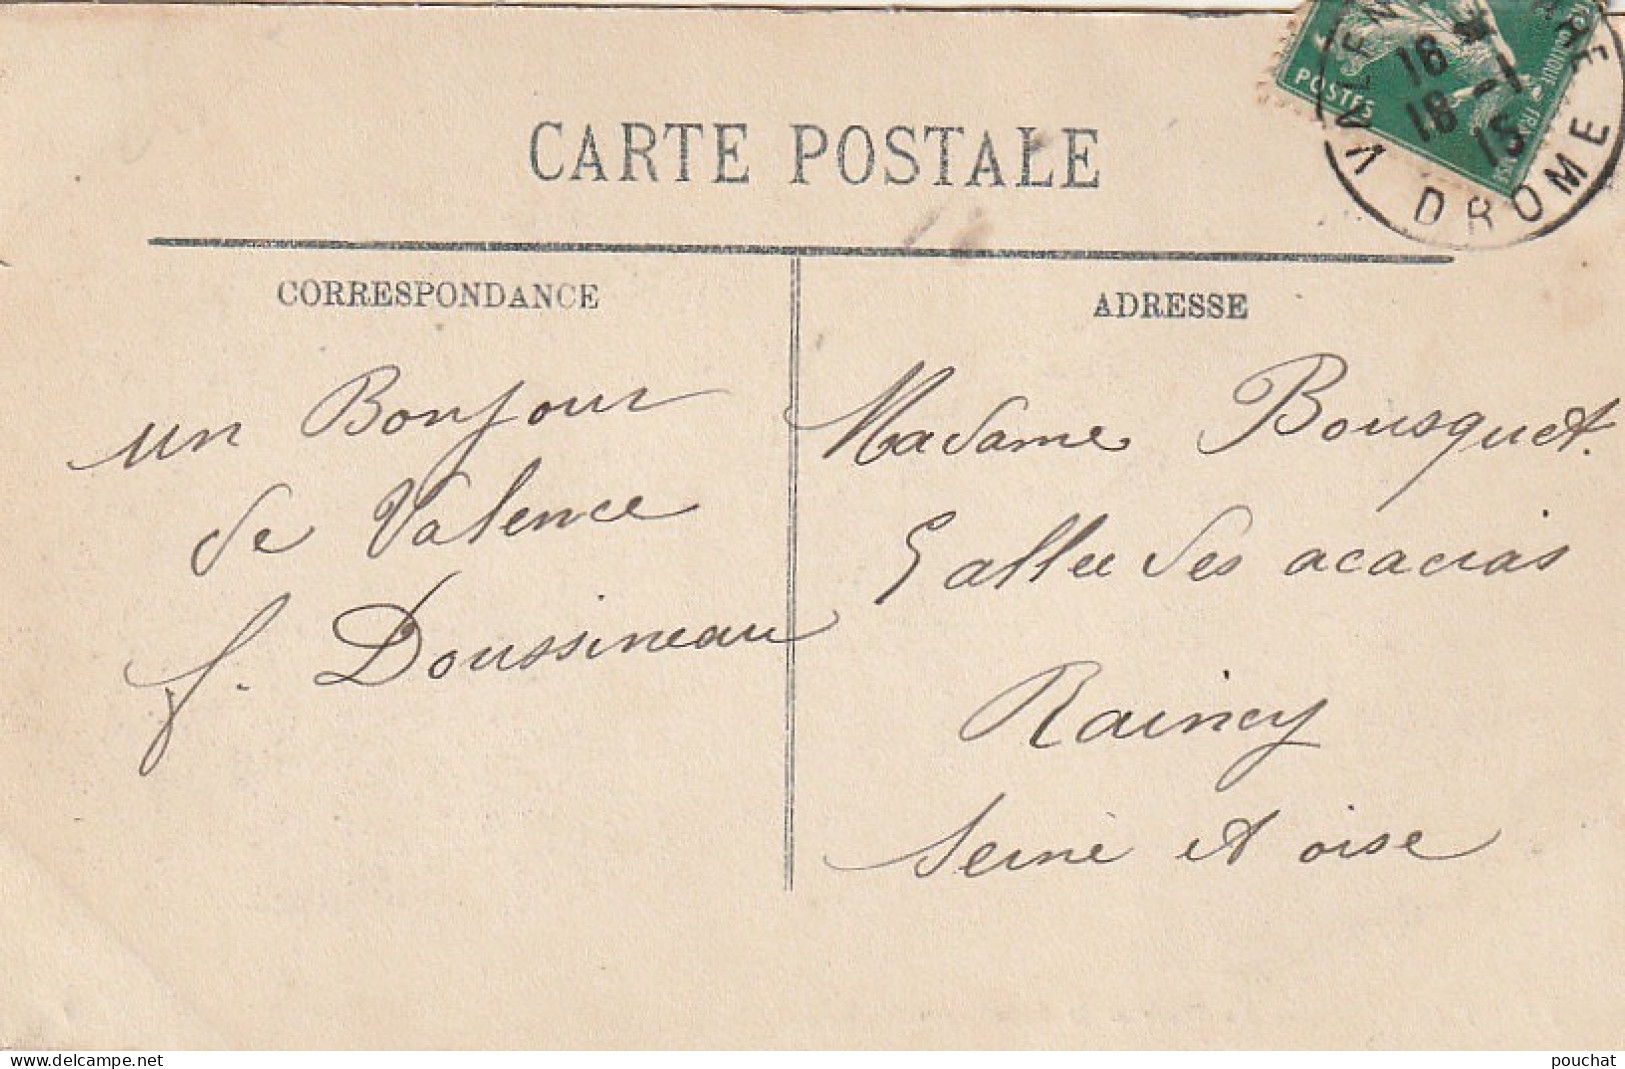 CARTE POSTALE
CORRESPONDANCE
un Bonjour
de Valence
f. Doussineau
ADRESSE
Madame Bousquet.
5 allee des acacias
Raincy
Seine et oise
POSTES
DROME
18 *
18 -1
15
www.delcampe.net
pouchat